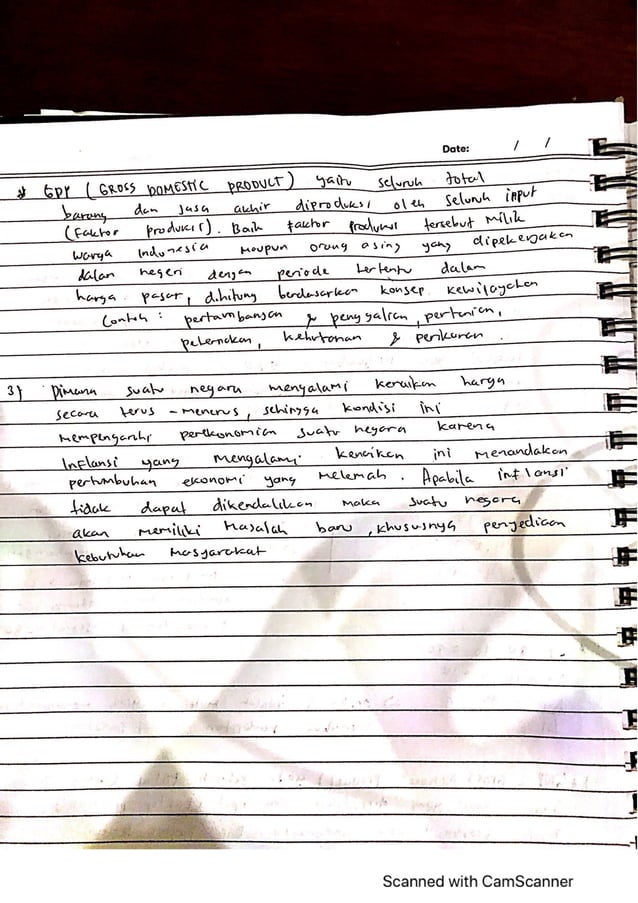 Date: / /
GDP (GROSS DOMESTIC PRODUCT) yaitu seluruh total
barang dan jasa akhir diproduksi oleh seluruh input
(faktor produksi). Baik faktor produksi tersebut milik
warga Indonesia maupun orang asing yang dipekerjakan
dalam negeri dengan periode tertentu dalam
harga pasar, dihitung berdasarkan konsep kewilayahan
Contoh : pertambangan & penggalian, pertanian,
peternakan, kehutanan & perikanan.
3) Dimana suatu negara mengalami kenaikan harga
secara terus - menerus, sehingga kondisi ini
mempengaruhi perekonomian suatu negara karena
Inflansi yang mengalami kenaikan ini menandakan
pertumbuhan ekonomi yang melemah. Apabila inflansi
tidak dapat dikendalikan maka suatu negara
akan memiliki masalah baru, khususnya penyediaan
kebutuhan masyarakat
Scanned with CamScanner